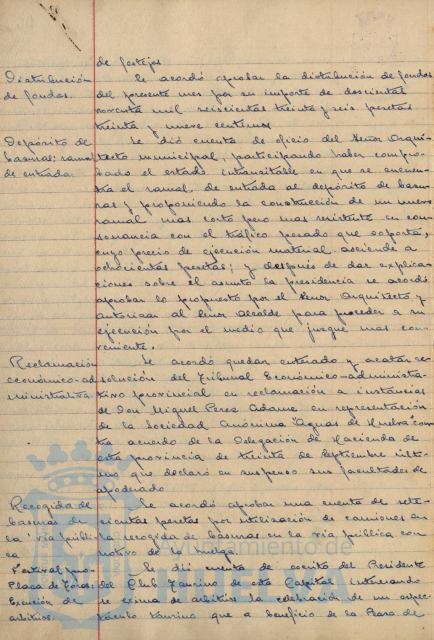 de festejos
Distribución
de fondos.
Se acordó aprobar la distribución de fondos
del presente mes por su importe de doscientas
noventa mil seiscientas treinta y seis pesetas
treinta y nueve centimos
Depósito de
basuras; ramal
de entrada.
Se dió cuenta de oficio del Señor Arqui-
tecto municipal, participando haber compro-
bado el estado intransitable en que se encuen-
tra el ramal de entrada al depósito de basu-
ras y proponiendo la construcción de un nuevo
ramal mas corto pero mas resistente en con-
sonancia con el tráfico pesado que soporta,
cuyo precio de ejecución material asciende a
ochocientas pesetas; y después de dar explica-
ciones sobre el asunto la presidencia se acordó
aprobar lo propuesto por el Señor Arquitecto y
autorizar al Señor Alcalde para proceder a su
ejecución por el medio que juzgue mas con-
veniente.
Reclamación
económico-ad
ministrativa.
Se acordó quedar enterado y acatar re-
solución del Tribunal Económico-administra-
tivo provincial en reclamación a instancias
de Don Miguel Perez Adame en representación
de la Sociedad Anónima "Aguas de Huelva" con-
tra acuerdo de la Delegación de Hacienda de
esta provincia de treinta de Septiembre últi-
mo que declaró en suspenso sus facultades de
apoderado
Recogida de
basuras en
la via públi-
ca
Se acordó aprobar una cuenta de sete-
cientas pesetas por utilización de camiones en
la recogida de basuras en la via pública con
motivo de la huelga.
Festival
Plaza de Toros:
Exención de
arbitrios.
Se dió cuenta de escrito del Presidente
del Club Taurino de esta Capital interesando
se exima de arbitrios la celebración de un espec-
táculo taurino que a beneficio de la de
Ayuntamiento de
HUELVA